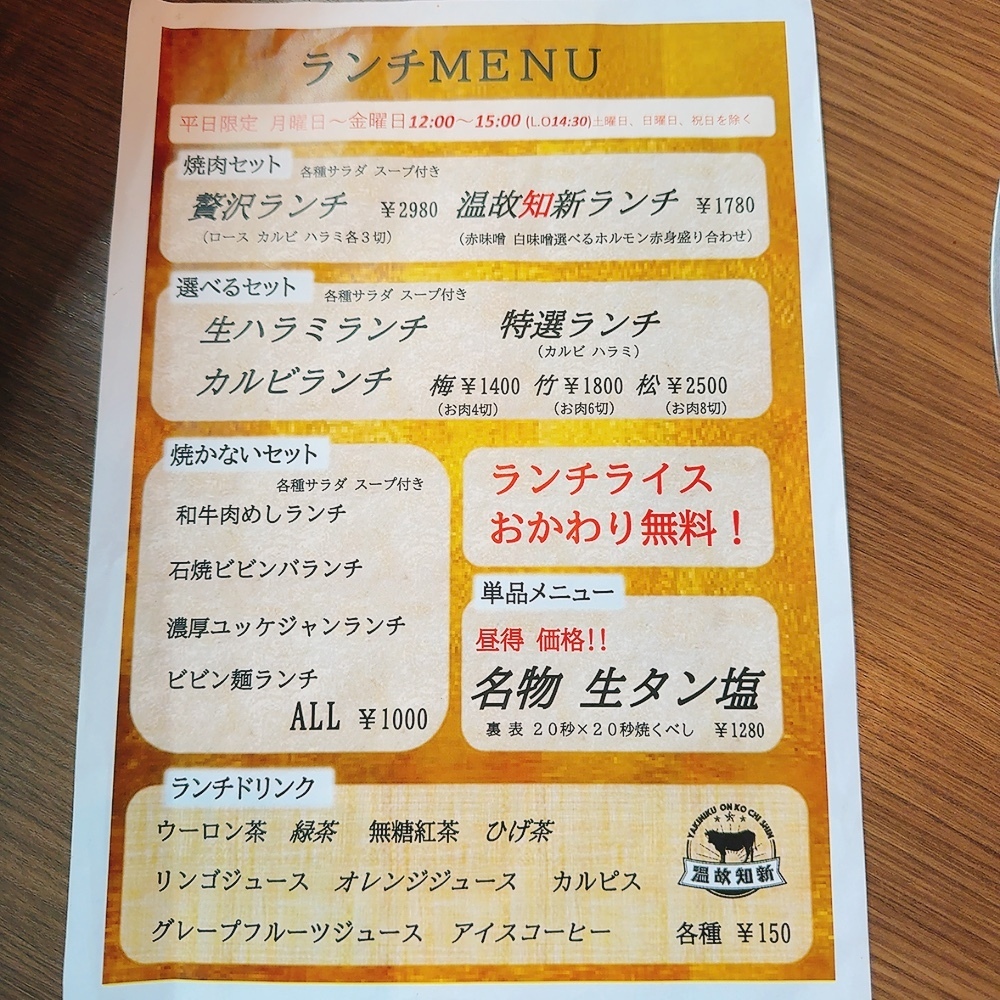 ランチMENU
平日限定 月曜日～金曜日12:00～15:00 (L.O14:30)土曜日、日曜日、祝日を除く
焼肉セット 各種サラダ スープ付き
贅沢ランチ ¥2980 温故知新ランチ ¥1780
（ロース カルビ ハラミ各３切） （赤味噌 白味噌選べるホルモン赤身盛り合わせ）
選べるセット 各種サラダ スープ付き
生ハラミランチ 特選ランチ
（カルビ ハラミ）
カルビランチ 梅 ¥1400 竹 ¥1800 松 ¥2500
（お肉4切） （お肉6切） （お肉8切）
焼かないセット
各種サラダ スープ付き
和牛肉めしランチ
石焼ビビンバランチ
濃厚ユッケジャンランチ
ビビン麺ランチ
ALL ¥1000
ランチライス
おかわり無料！
単品メニュー
昼得 価格!!
名物 生タン塩
裏 表 ２０秒×２０秒焼くべし ¥1280
ランチドリンク
ウーロン茶 緑茶 無糖紅茶 ひげ茶
リンゴジュース オレンジジュース カルピス
グレープフルーツジュース アイスコーヒー 各種 ¥150
YAKINIKU ON KO CHI SHIN
温故知新